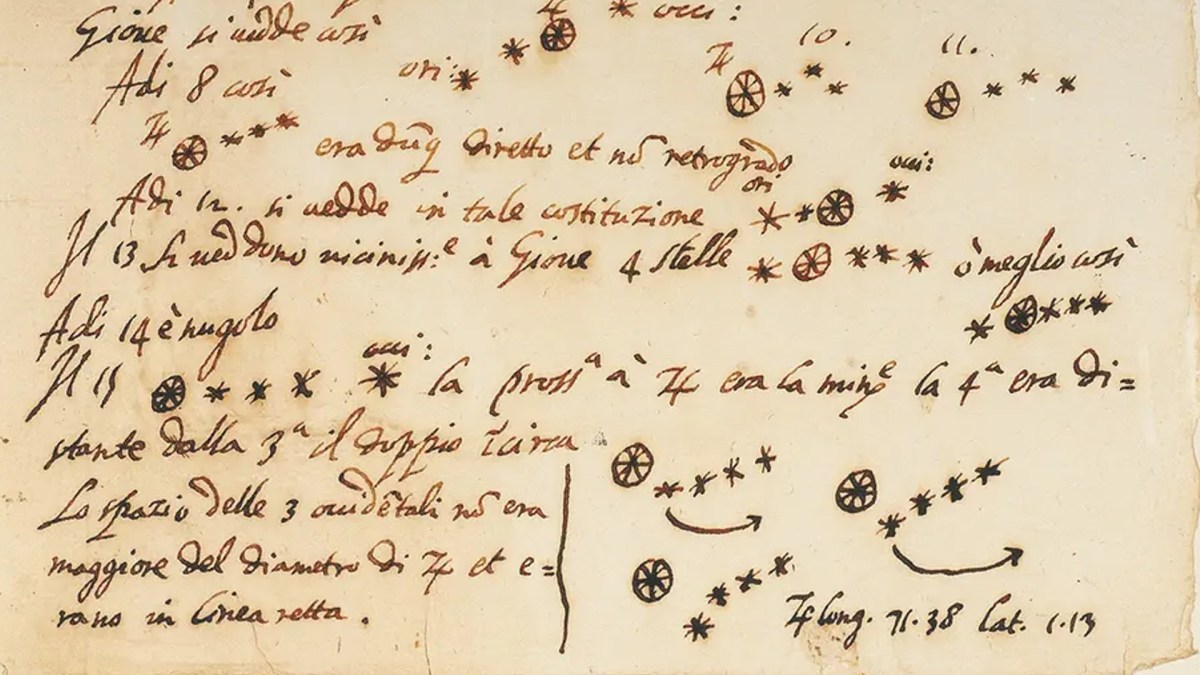 Gioue si uedde così ♃ * occi:
Adi 8 così ori: ♃ 10. 11.
♃ era dūq diretto et nō retrogrado
Adi 12. si uedde in tale costituzione ori occi:
Il 13 si ueddono uiciniss:e à Gioue 4 stelle ò meglio così
Adi 14 è nugolo
Il 15 occi: la pross.a à ♃ era la mine la 4.a era di=
stante dalla 3.a il doppio ī circa
Lo spazio delle 3 ouidētali nō era
maggiore del diametro di ♃ et e=
rano in linea retta.
♃ long. 71.38 lat. 1.13